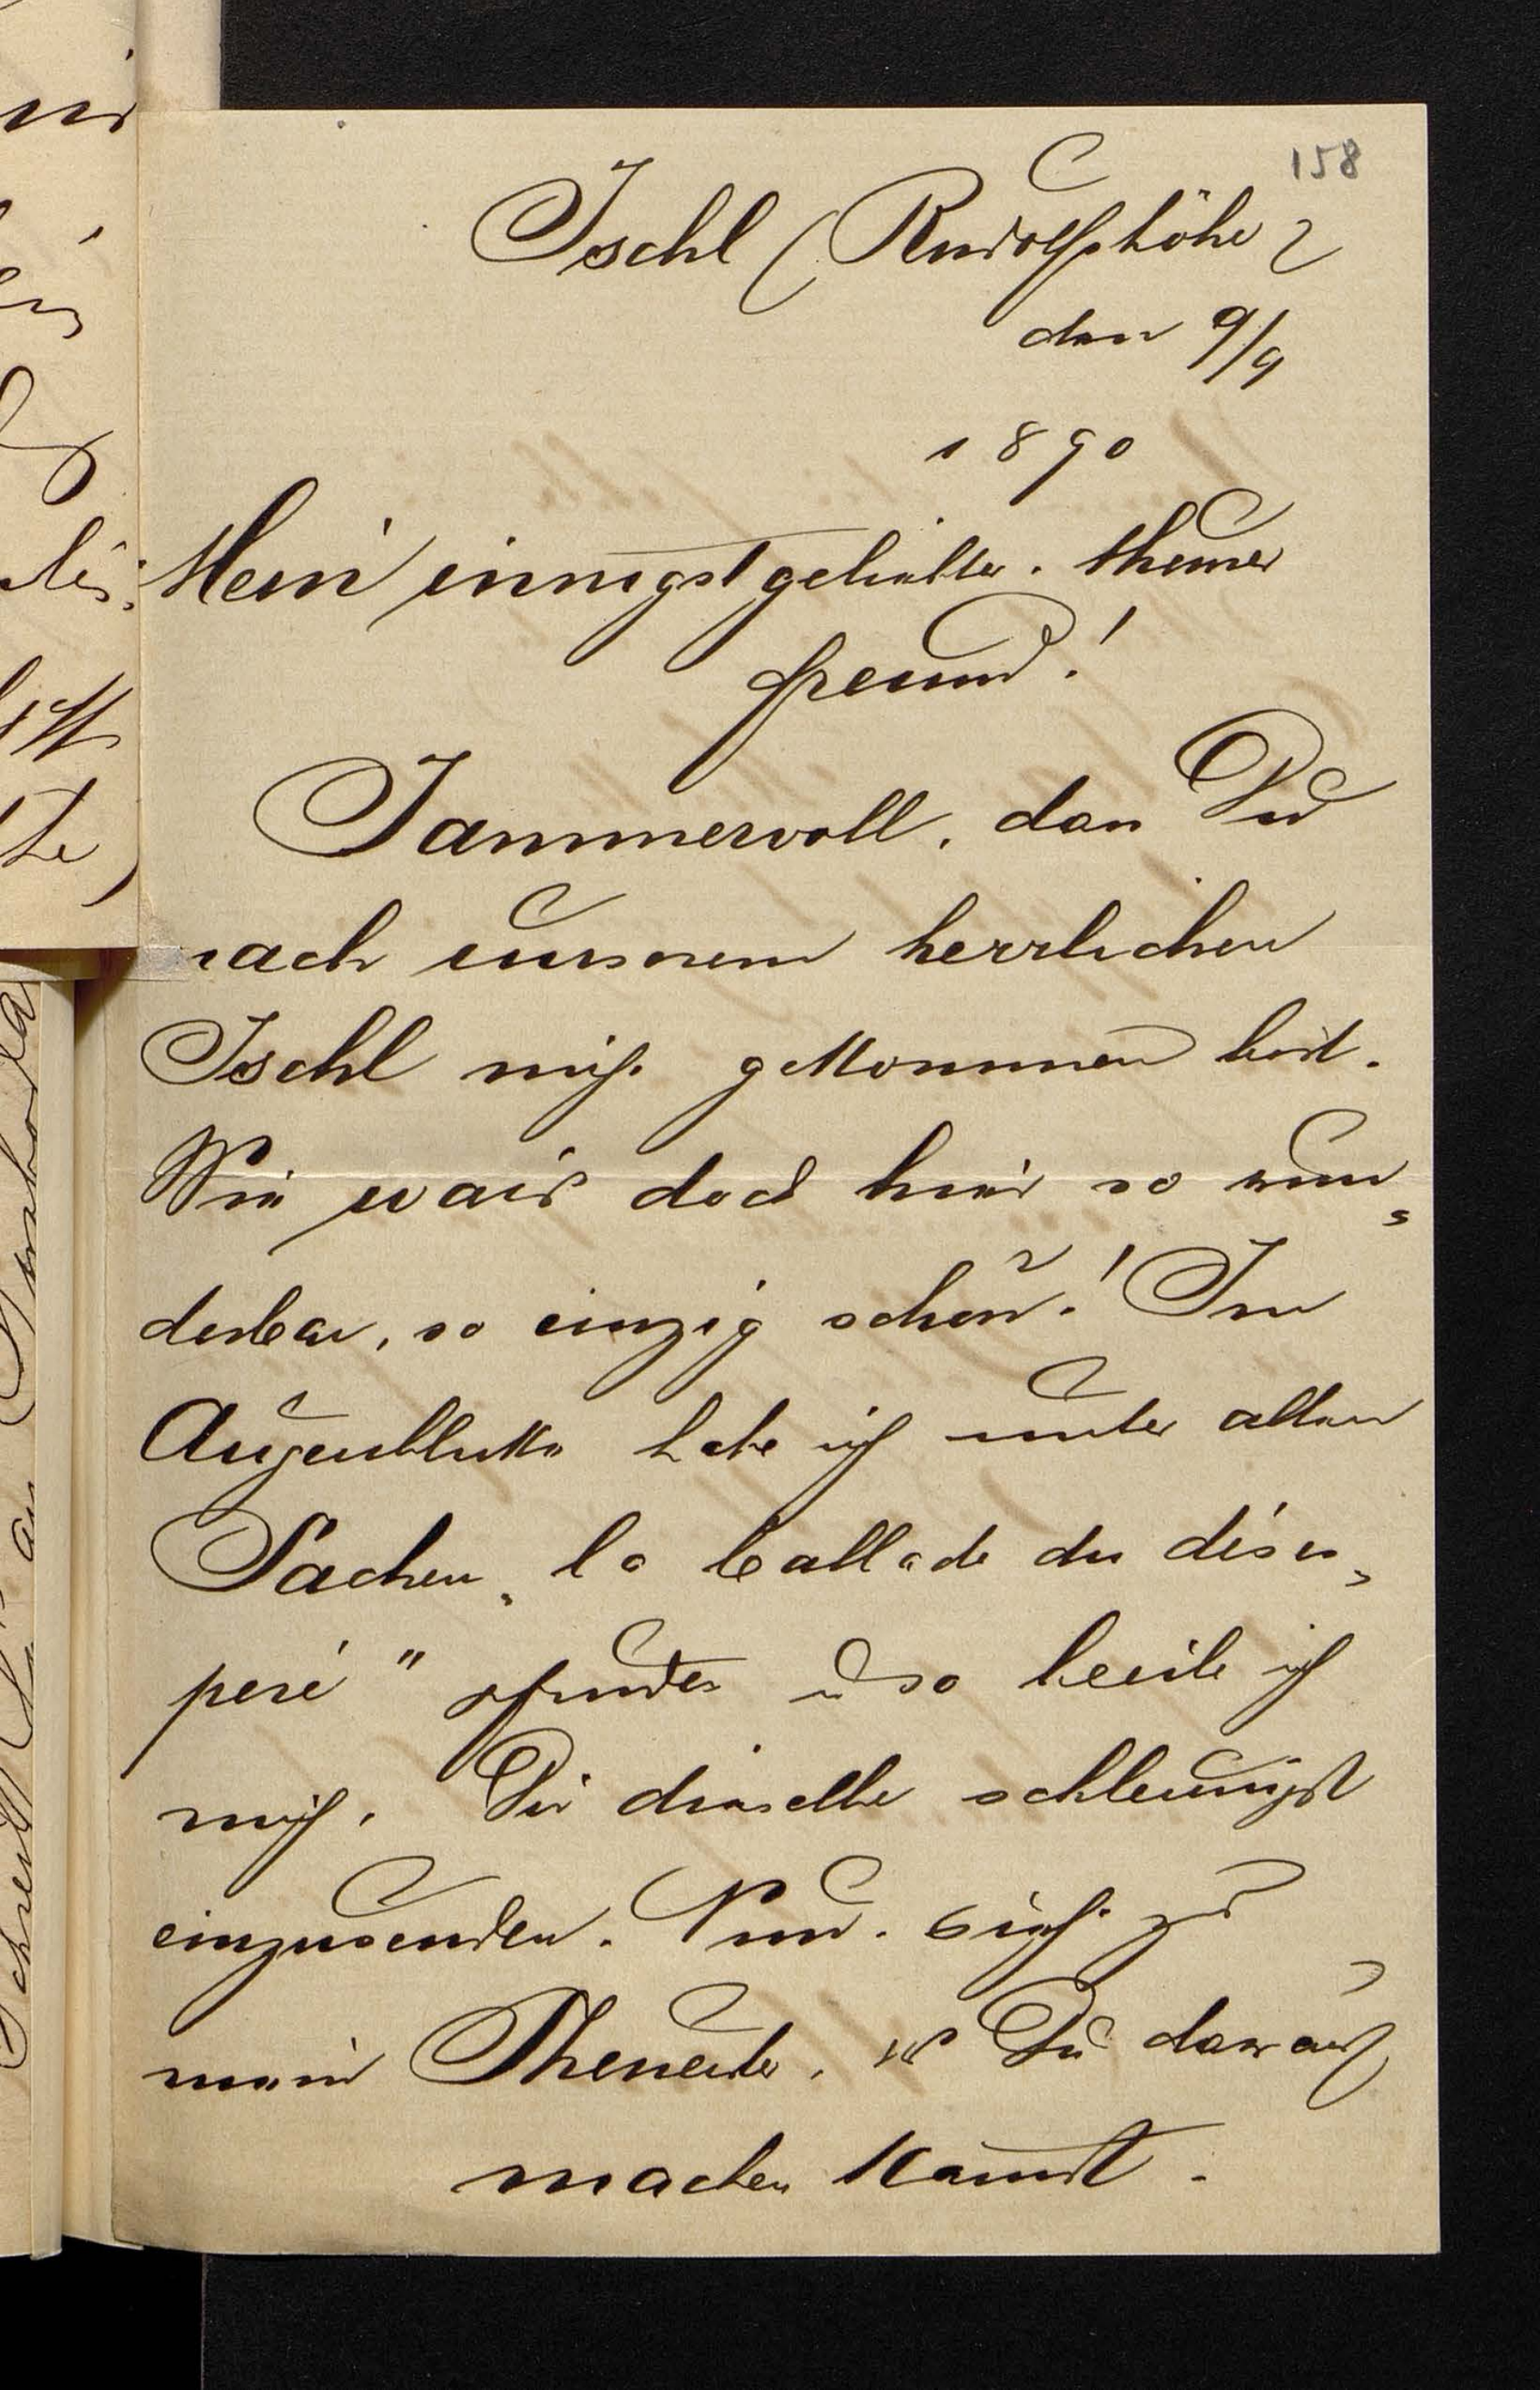 158
Ischl (Rudolfshöhe)
den 9/9
1890
Mein innigst geliebter, theurer
Freund!
Jammervoll, dass Du
nach unserem herrlichen
Ischl nicht gekommen bist.
Wie war's doch hier so wun=
derbar, so einzig schön! Im
Augenblicke habe ich unter alten
Sachen „la ballade du déses=
peré" gefunden u so beeile ich
mich, Dir dieselbe schleunigst
einzusenden. Nun, sieh' zu
mein Theuerster, was Du daraus
machen kannst.